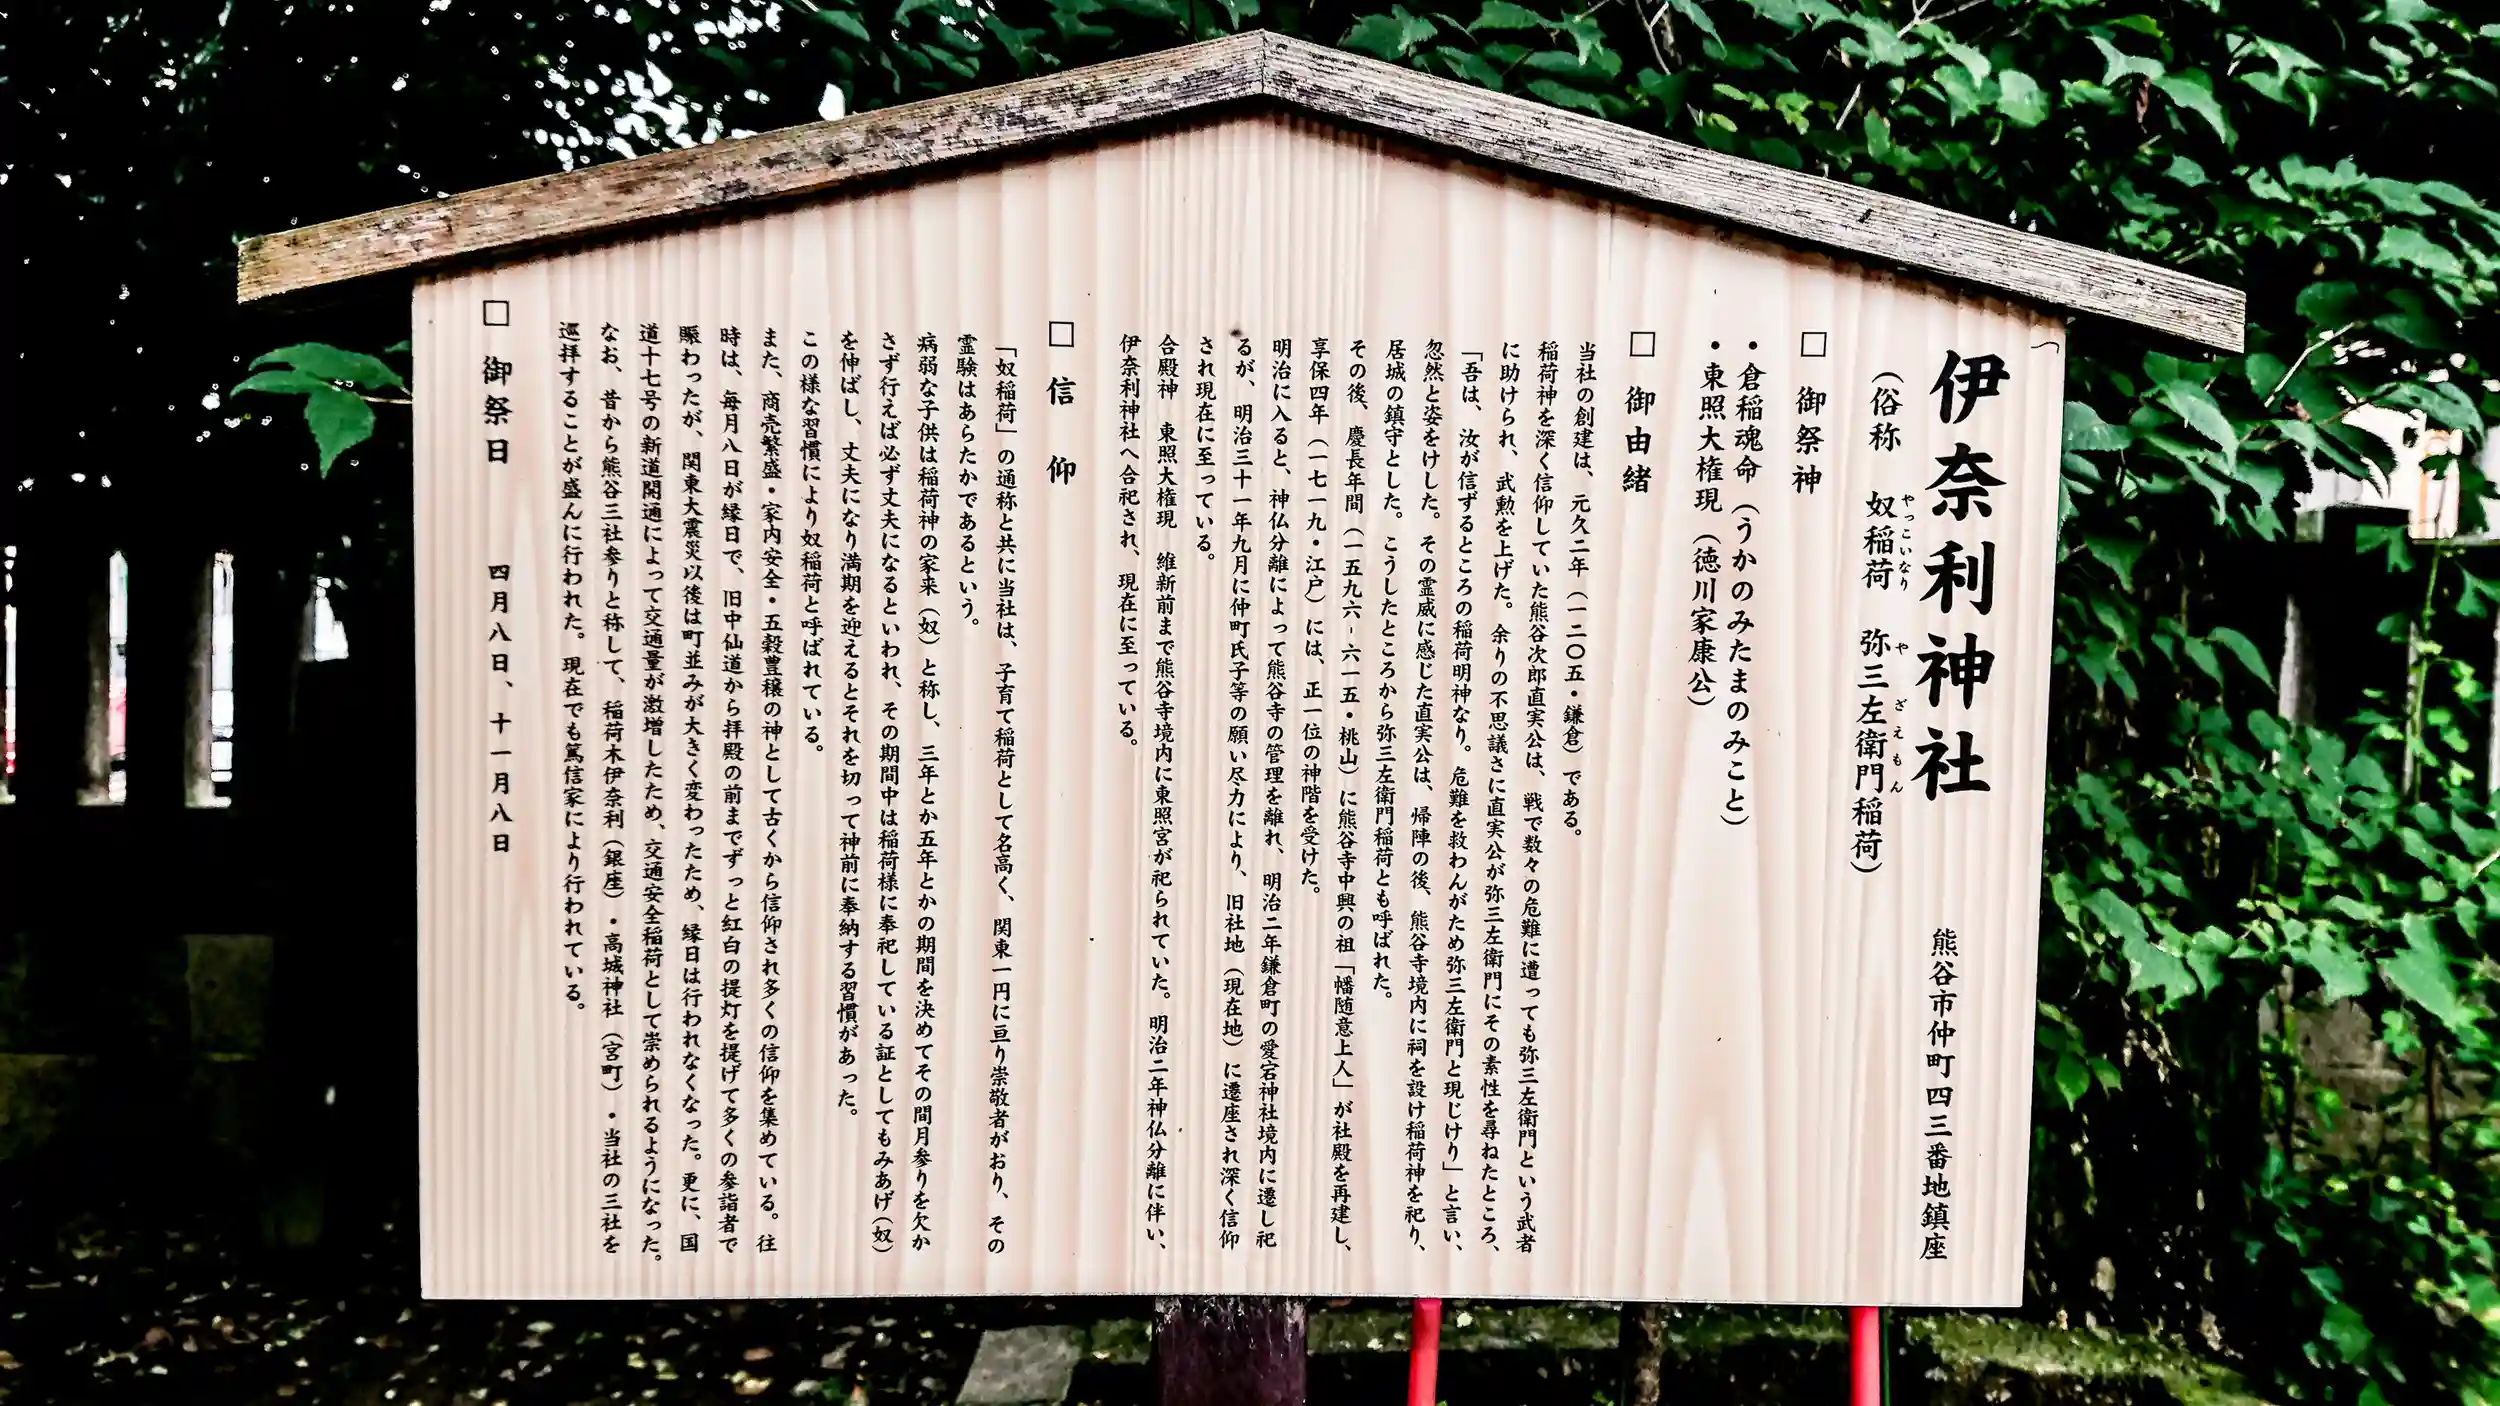 伊奈利神社 熊谷市仲町四三番地鎮座
(俗称 奴稲荷 弥三左衛門稲荷)
やっこいなり や ざえもん
□ 御祭神
・倉稲魂命(うかのみたまのみこと)
・東照大権現(徳川家康公)
□ 御由緒
当社の創建は、元久二年(一二〇五・鎌倉)である。
稲荷神を深く信仰していた熊谷次郎直実公は、戦で数々の危難に遭っても弥三左衛門という武者
に助けられ、武勲を上げた。余りの不思議さに直実公が弥三左衛門にその素性を尋ねたところ、
「吾は、汝が信ずるところの稲荷明神なり。危難を救わんがため弥三左衛門と現じけり」と言い、
忽然と姿をけした。その霊威に感じた直実公は、帰陣の後、熊谷寺境内に祠を設け稲荷神を祀り、
居城の鎮守とした。こうしたところから弥三左衛門稲荷とも呼ばれた。
その後、慶長年間(一五九六-六一五・桃山)に熊谷寺中興の祖「幡随意上人」が社殿を再建し、
享保四年(一七一九・江戸)には、正一位の神階を受けた。
明治に入ると、神仏分離によって熊谷寺の管理を離れ、明治二年鎌倉町の愛宕神社境内に遷し祀
るが、明治三十一年九月に仲町氏子等の願い尽力により、旧社地(現在地)に遷座され深く信仰
され現在に至っている。
合殿神 東照大権現 維新前まで熊谷寺境内に東照宮が祀られていた。明治二年神仏分離に伴い、
伊奈利神社へ合祀され、現在に至っている。
□ 信 仰
「奴稲荷」の通称と共に当社は、子育て稲荷として名高く、関東一円に亘り崇敬者がおり、その
霊験はあらたかであるという。
病弱な子供は稲荷神の家来(奴)と称し、三年とか五年とかの期間を決めてその間月参りを欠か
さず行えば必ず丈夫になるといわれ、その期間中は稲荷様に奉祀している証としてもみあげ(奴)
を伸ばし、丈夫になり満期を迎えるとそれを切って神前に奉納する習慣があった。
この様な習慣により奴稲荷と呼ばれている。
また、商売繁盛・家内安全・五穀豊穣の神として古くから信仰され多くの信仰を集めている。往
時は、毎月八日が縁日で、旧中仙道から拝殿の前までずっと紅白の提灯を提げて多くの参詣者で
賑わったが、関東大震災以後は町並みが大きく変わったため、縁日は行われなくなった。更に、国
道十七号の新道開通によって交通量が激増したため、交通安全稲荷として崇められるようになった。
なお、昔から熊谷三社参りと称して、稲荷木伊奈利(銀座)・高城神社(宮町)・当社の三社を
巡拝することが盛んに行われた。現在でも篤信家により行われている。
□ 御祭日 四月八日、十一月八日